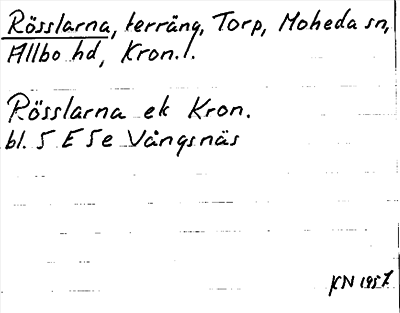 Rösslarna, terräng, Torp, Moheda sn,
Allbo hd, Kron.l.
Rösslarna ek Kron.
bl. 5 E 5e Vångsnäs
KN 1957